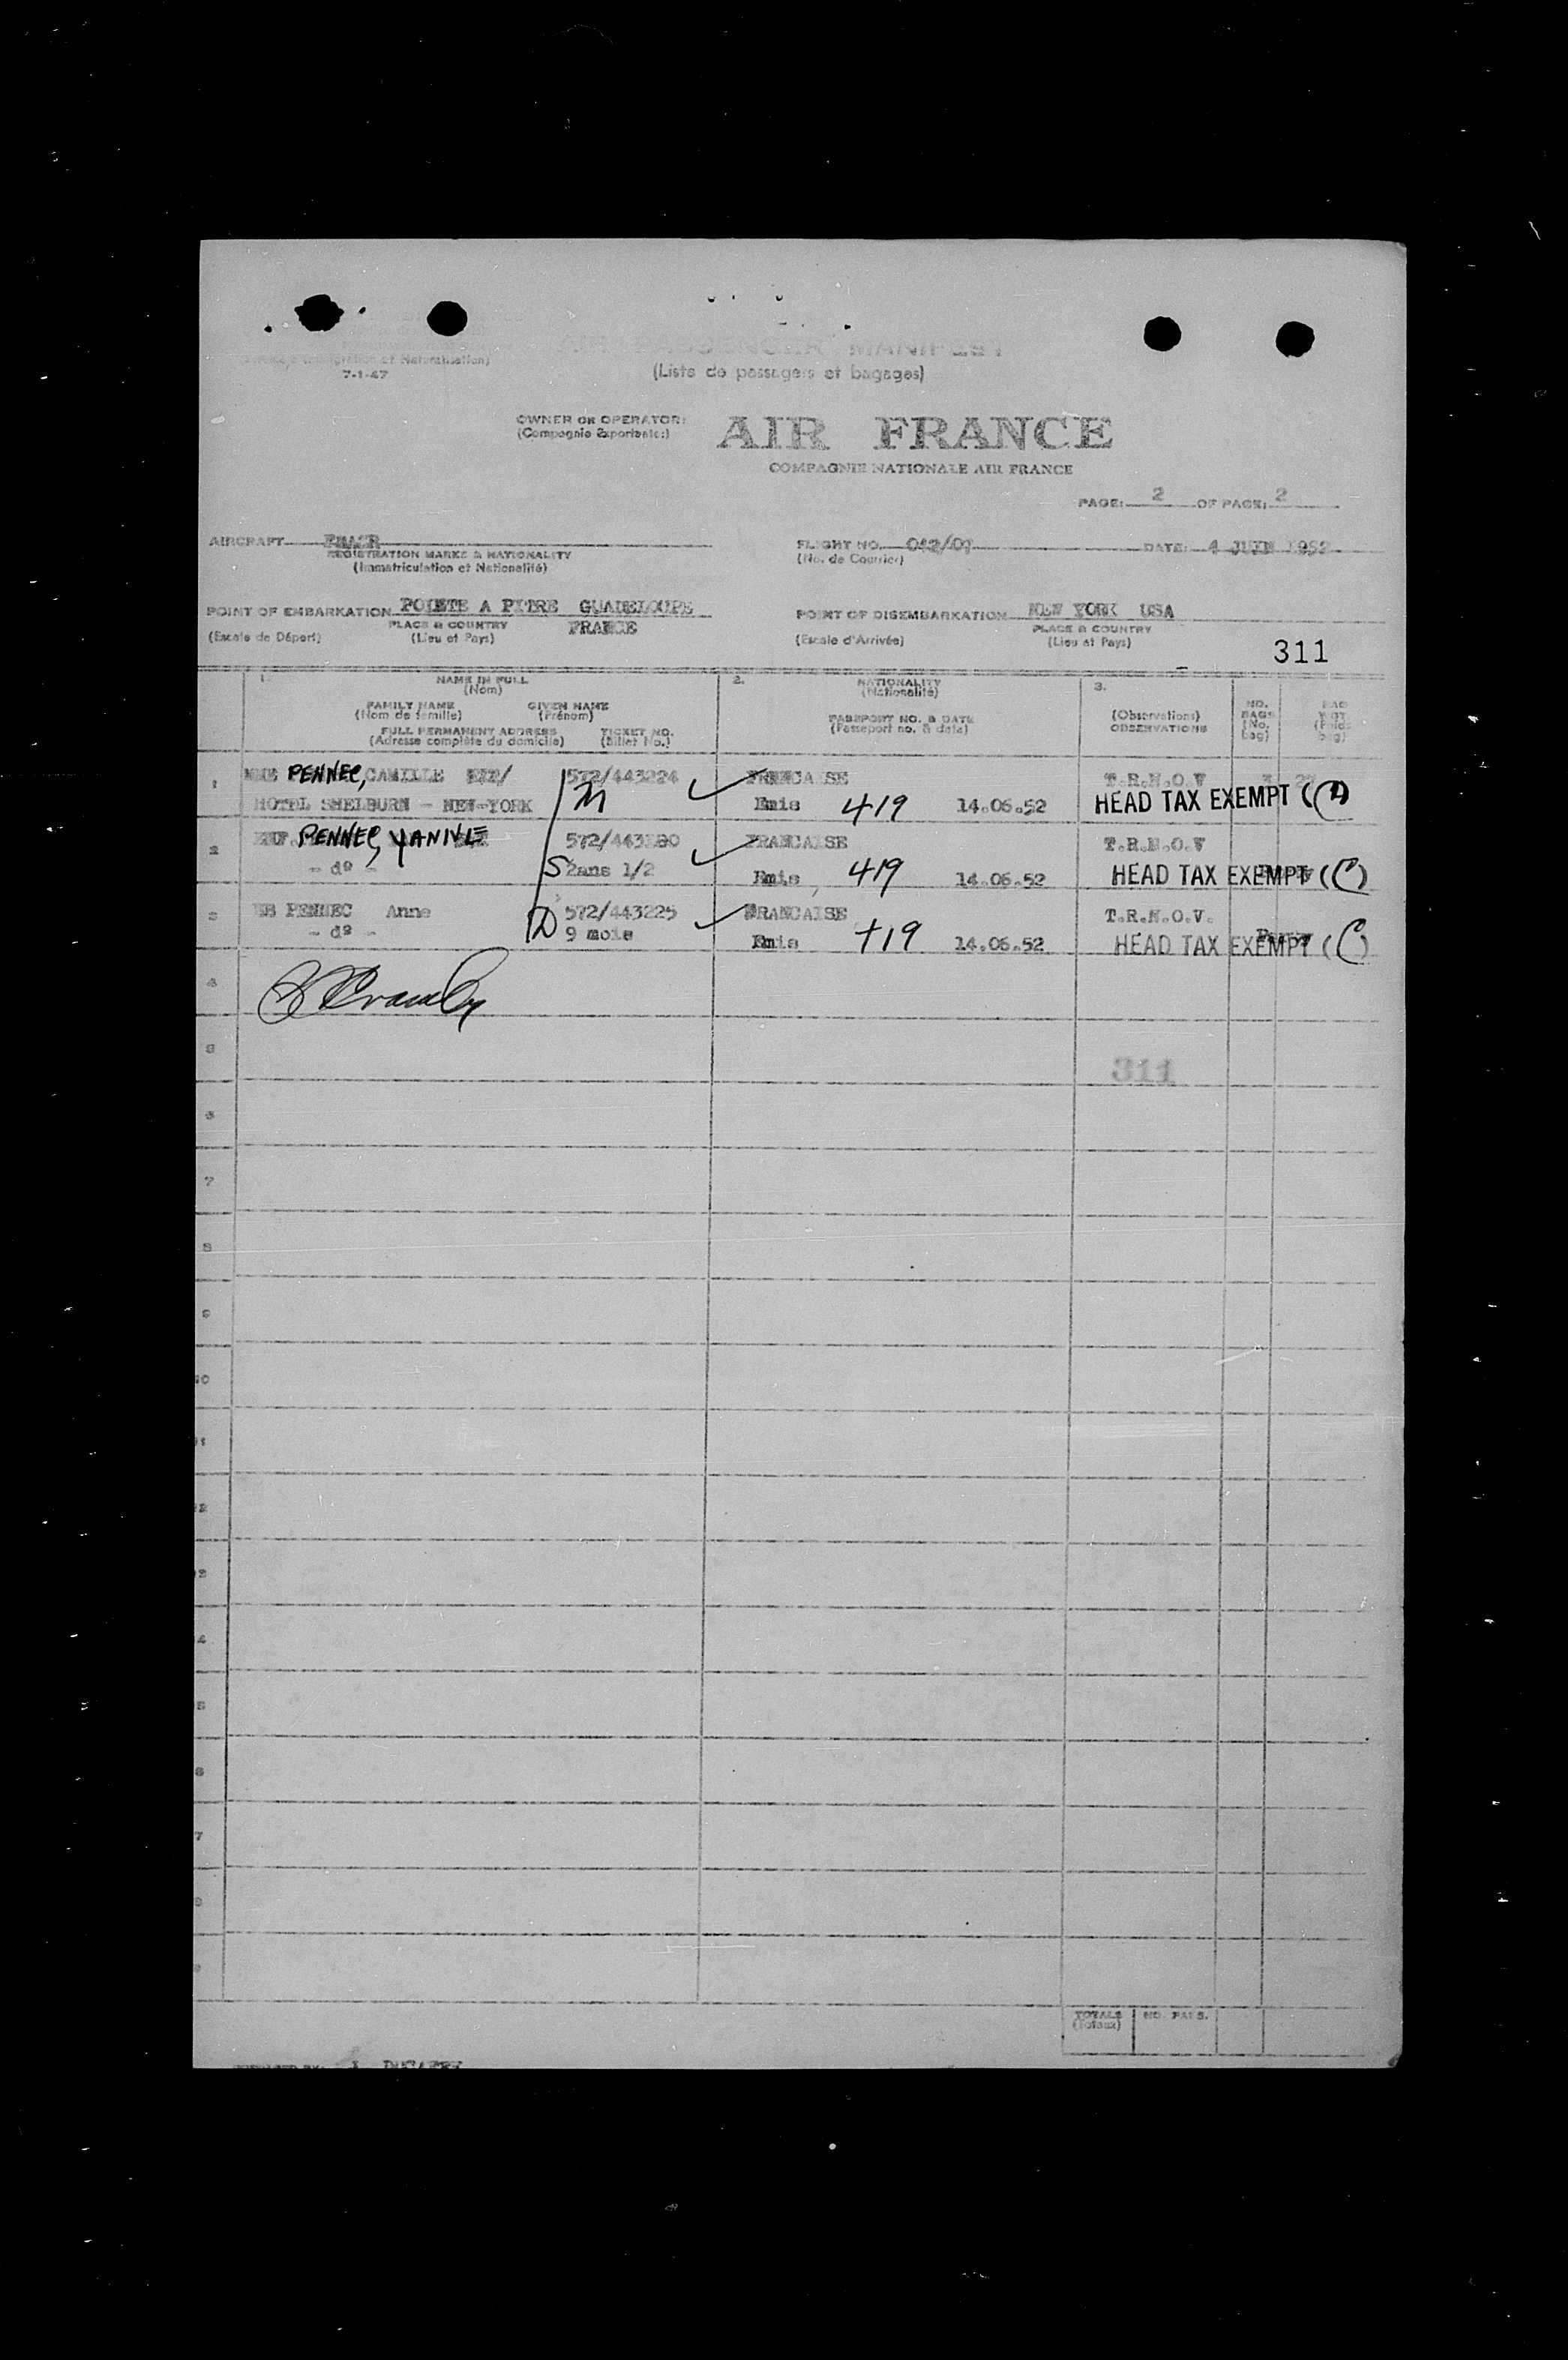 7-1-47
MANIFEST
(Liste de passagers et bagages)
OWNER OR OPERATOR:
AIR FRANCE
(Compagnie Exportante:)
COMPAGNIE NATIONALE AIR FRANCE
PAGE: 2 OF PAGE: 2
AIRCRAFT
REGISTRATION MARKS & NATIONALITY
(Immatriculation et Nationalité)
FLIGHT NO. 042/07 DATE: 4 JUIN 1952
(No. de Courrier)
POINT OF EMBARKATION POINTE A PITRE GUADELOUPE
PLACE & COUNTRY FRANCE
(Escale de Départ) (Lieu et Pays)
POINT OF DISEMBARKATION NEW YORK USA
PLACE & COUNTRY
(Escale d'Arrivée) (Lieu et Pays)
311
1. NAME IN FULL
(Nom)
FAMILY NAME GIVEN NAME
(Nom de famille) (Prénom)
FULL PERMANENT ADDRESS TICKET NO.
(Adresse complète du domicile) (Billet No.)
2. NATIONALITY
(Nationalité)
PASSPORT NO. & DATE
(Passeport no. & date)
3.
(Observations)
OBSERVATIONS
NO. BAGS
(No. bag)
1 MME PENNEC, CAMILLE 572/443224 FRANCAISE T.R.N.O.V
HOTEL SHELBURN - NEW-YORK M Emis 419 14.06.52 HEAD TAX EXEMPT (
2 PENNEC, YANIVLE FRANCAISE T.R.N.O.V
- d° - S 2ans 1/2 Emis 419 14.06.52 HEAD TAX EXEMPT (C)
3 BB PENNEC Anne D 572/443225 FRANCAISE T.R.N.O.V.
- d° - 9 mois Emis 419 14.06.52 HEAD TAX EXEMPT (C)
4
5
311
6
7
8
9
10
TOTALS NO. PASS.
(Totaux)